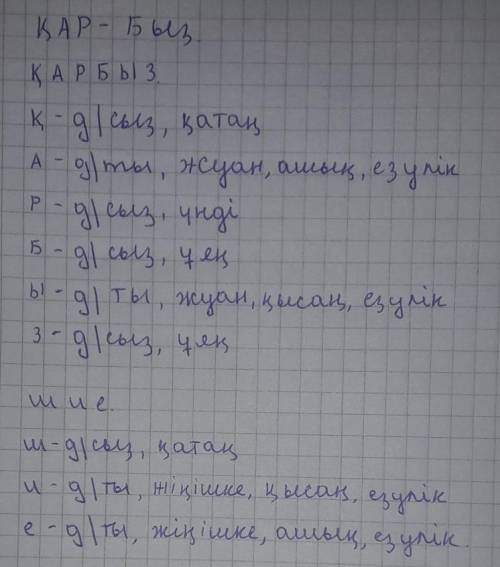 ҚАР - БЫЗ.
ҚАРБЫЗ.
Қ - д/сыз, қатаң
А - д/ты, жуан, ашық, езулік
Р - д/сыз, үнді
Б - д/сыз, ұяң
Ы - д/ты, жуан, қысаң, езулік
З - д/сыз, ұяң
шие.
ш - д/сыз, қатаң
и - д/ты, жіңішке, қысаң, езулік
е - д/ты, жіңішке, ашық, езулік.